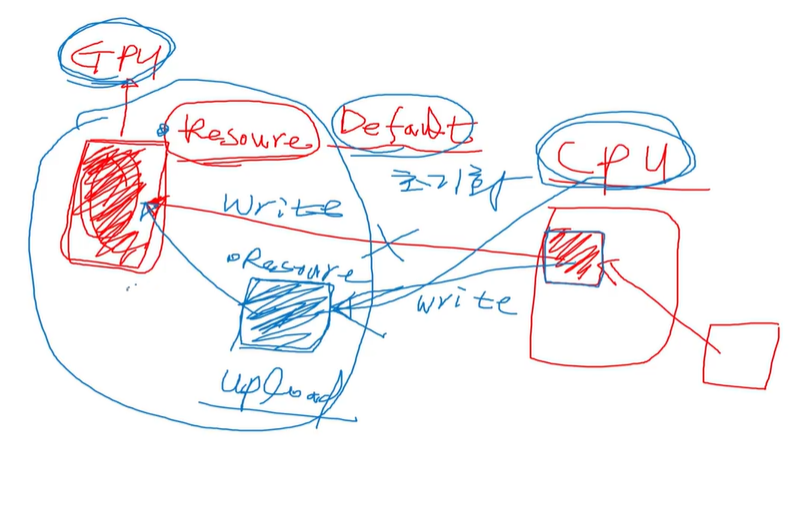 GPU
Resoure
Default
CPU
초기화
write
Resoure
write
upload